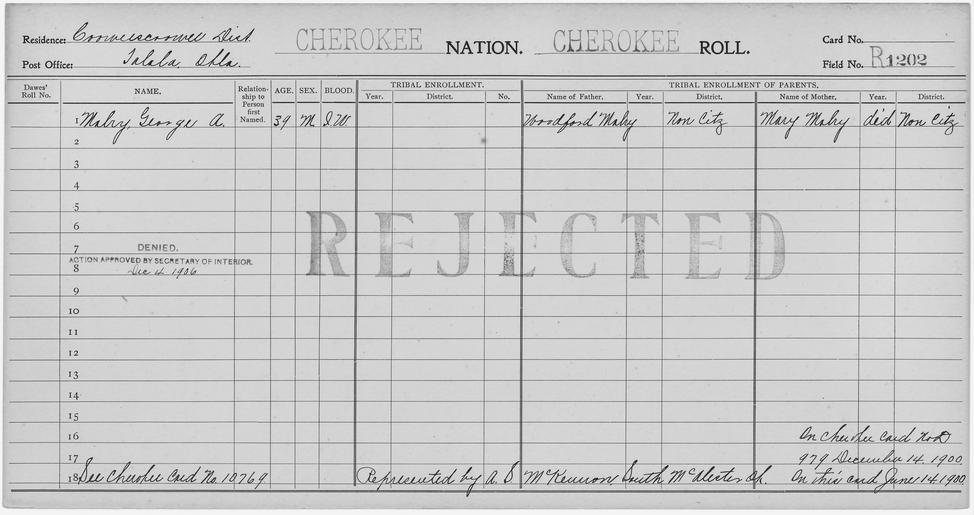 Residence: Coowescoowee Dist. CHEROKEE NATION. CHEROKEE ROLL. Card No.
Post Office: Talala, Okla. Field No. R1202
Dawes' Roll No. NAME. Relationship to Person first Named. AGE. SEX. BLOOD. TRIBAL ENROLLMENT. TRIBAL ENROLLMENT OF PARENTS.
Year. District. No. Name of Father. Year. District. Name of Mother. Year. District.
1 Mabry, George A. 39 M. I.W. Woodford Mabry Non Citz Mary Mabry de'd Non Citz
2
3
4
5
6
REJECTED
7 DENIED.
ACTION APPROVED BY SECRETARY OF INTERIOR.
8 Dec 4 1906
9
10
11
12
13
14
15
16 On Cherokee Card No D
17 979 December 14. 1900.
18 See Cherokee Card No. 10769 Represented by A. S McKennon South McAlester Ok. On this card June 14 1900